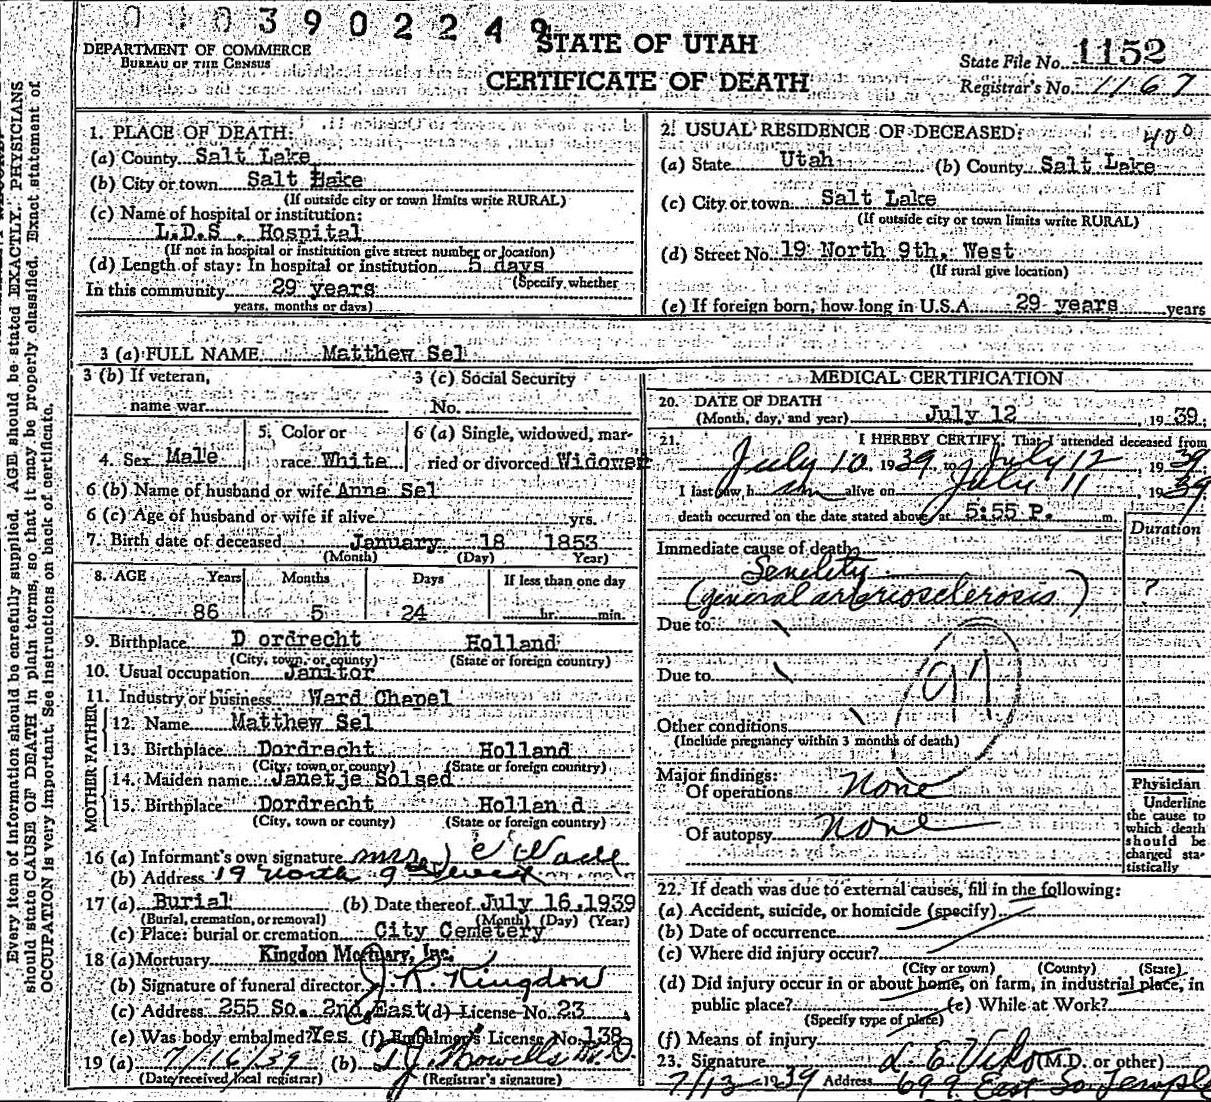 003902249
DEPARTMENT OF COMMERCE
BUREAU OF THE CENSUS
STATE OF UTAH
CERTIFICATE OF DEATH
State File No. 1152
Registrar's No. 1167
Every item of information should be carefully supplied. AGE should be stated EXACTLY. PHYSICIANS
should state CAUSE OF DEATH in plain terms, so that it may be properly classified. Exact statement of
OCCUPATION is very important. See instructions on back of certificate.
1. PLACE OF DEATH:
(a) County Salt Lake
(b) City or town Salt Lake
(If outside city or town limits write RURAL)
(c) Name of hospital or institution:
L.D.S. Hospital
(If not in hospital or institution give street number or location)
(d) Length of stay: In hospital or institution 5 days
(Specify whether
In this community 29 years
years, months or days)
2. USUAL RESIDENCE OF DECEASED:
(a) State Utah (b) County Salt Lake
(c) City or town Salt Lake
(If outside city or town limits write RURAL)
(d) Street No. 19 North 9th. West
(If rural give location)
(e) If foreign born, how long in U.S.A. 29 years years
3 (a) FULL NAME Matthew Sel
3 (b) If veteran,
name war
3 (c) Social Security
No.
4. Sex Male
5. Color or
race White
6 (a) Single, widowed, mar-
ried or divorced Widower
6 (b) Name of husband or wife Anna Sel
6 (c) Age of husband or wife if alive yrs.
7. Birth date of deceased January 18 1853
(Month) (Day) Year)
8. AGE Years Months Days If less than one day
86 5 24 hr. min.
9. Birthplace D ordrecht Holland
(City, town, or county) (State or foreign country)
10. Usual occupation Janitor
11. Industry or business Ward Chapel
FATHER
12. Name Matthew Sel
13. Birthplace Dordrecht Holland
(City, town or county) (State or foreign country)
MOTHER
14. Maiden name Janetje Solsed
15. Birthplace Dordrecht Hollan d
(City, town or county) (State or foreign country)
16 (a) Informant's own signature Mrs. Wade
(b) Address 19 North 9th West
17 (a) Burial (b) Date thereof July 16, 1939
(Burial, cremation, or removal) (Month) (Day) (Year)
(c) Place: burial or cremation City Cemetery
18 (a) Mortuary Kingdon Mortuary, Inc.
(b) Signature of funeral director J. K. Kingdon
(c) Address 255 So. 2nd East (d) License No. 23
(e) Was body embalmed? Yes. (f) Embalmer's License No. 138
19 (a) 7/16/39 (b) T.J. Howells M.D.
(Date received local registrar) (Registrar's signature)
MEDICAL CERTIFICATION
20. DATE OF DEATH
(Month, day, and year) July 12, 1939.
21. I HEREBY CERTIFY, That I attended deceased from
July 10, 1939 to July 12, 1939
I last saw h im alive on July 11, 1939
death occurred on the date stated above, at 5:55 P. m.
Duration
Immediate cause of death
Senility
(general arteriosclerosis) ?
Due to
Due to
97
Other conditions
(Include pregnancy within 3 months of death)
Major findings:
Of operations None
Of autopsy None
Physician
Underline
the cause to
which death
should be
charged sta-
tistically
22. If death was due to external causes, fill in the following:
(a) Accident, suicide, or homicide (specify)
(b) Date of occurrence
(c) Where did injury occur?
(City or town) (County) (State)
(d) Did injury occur in or about home, on farm, in industrial place, in
public place? (e) While at Work?
(Specify type of place)
(f) Means of injury
23. Signature L. E. Viko (M.D. or other)
7/13 1939 Address 699 East So. Temple